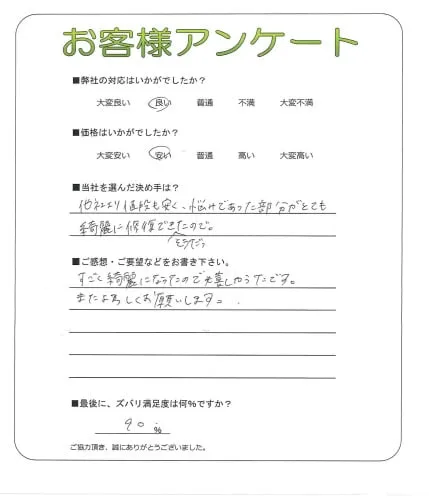 お客様アンケート
■弊社の対応はいかがでしたか？
大変良い 良い 普通 不満 大変不満
■価格はいかがでしたか？
大変安い 安い 普通 高い 大変高い
■当社を選んだ決め手は？
他社より値段も安く、悩みであった部分がとても
綺麗に修復できたので。
そうだっ
■ご感想・ご要望などをお書き下さい。
すごく綺麗になったので大喜しゃうたです。
またよろしくお願いします。
■最後に、ズバリ満足度は何%ですか？
90%
ご協力頂き、誠にありがとうございました。